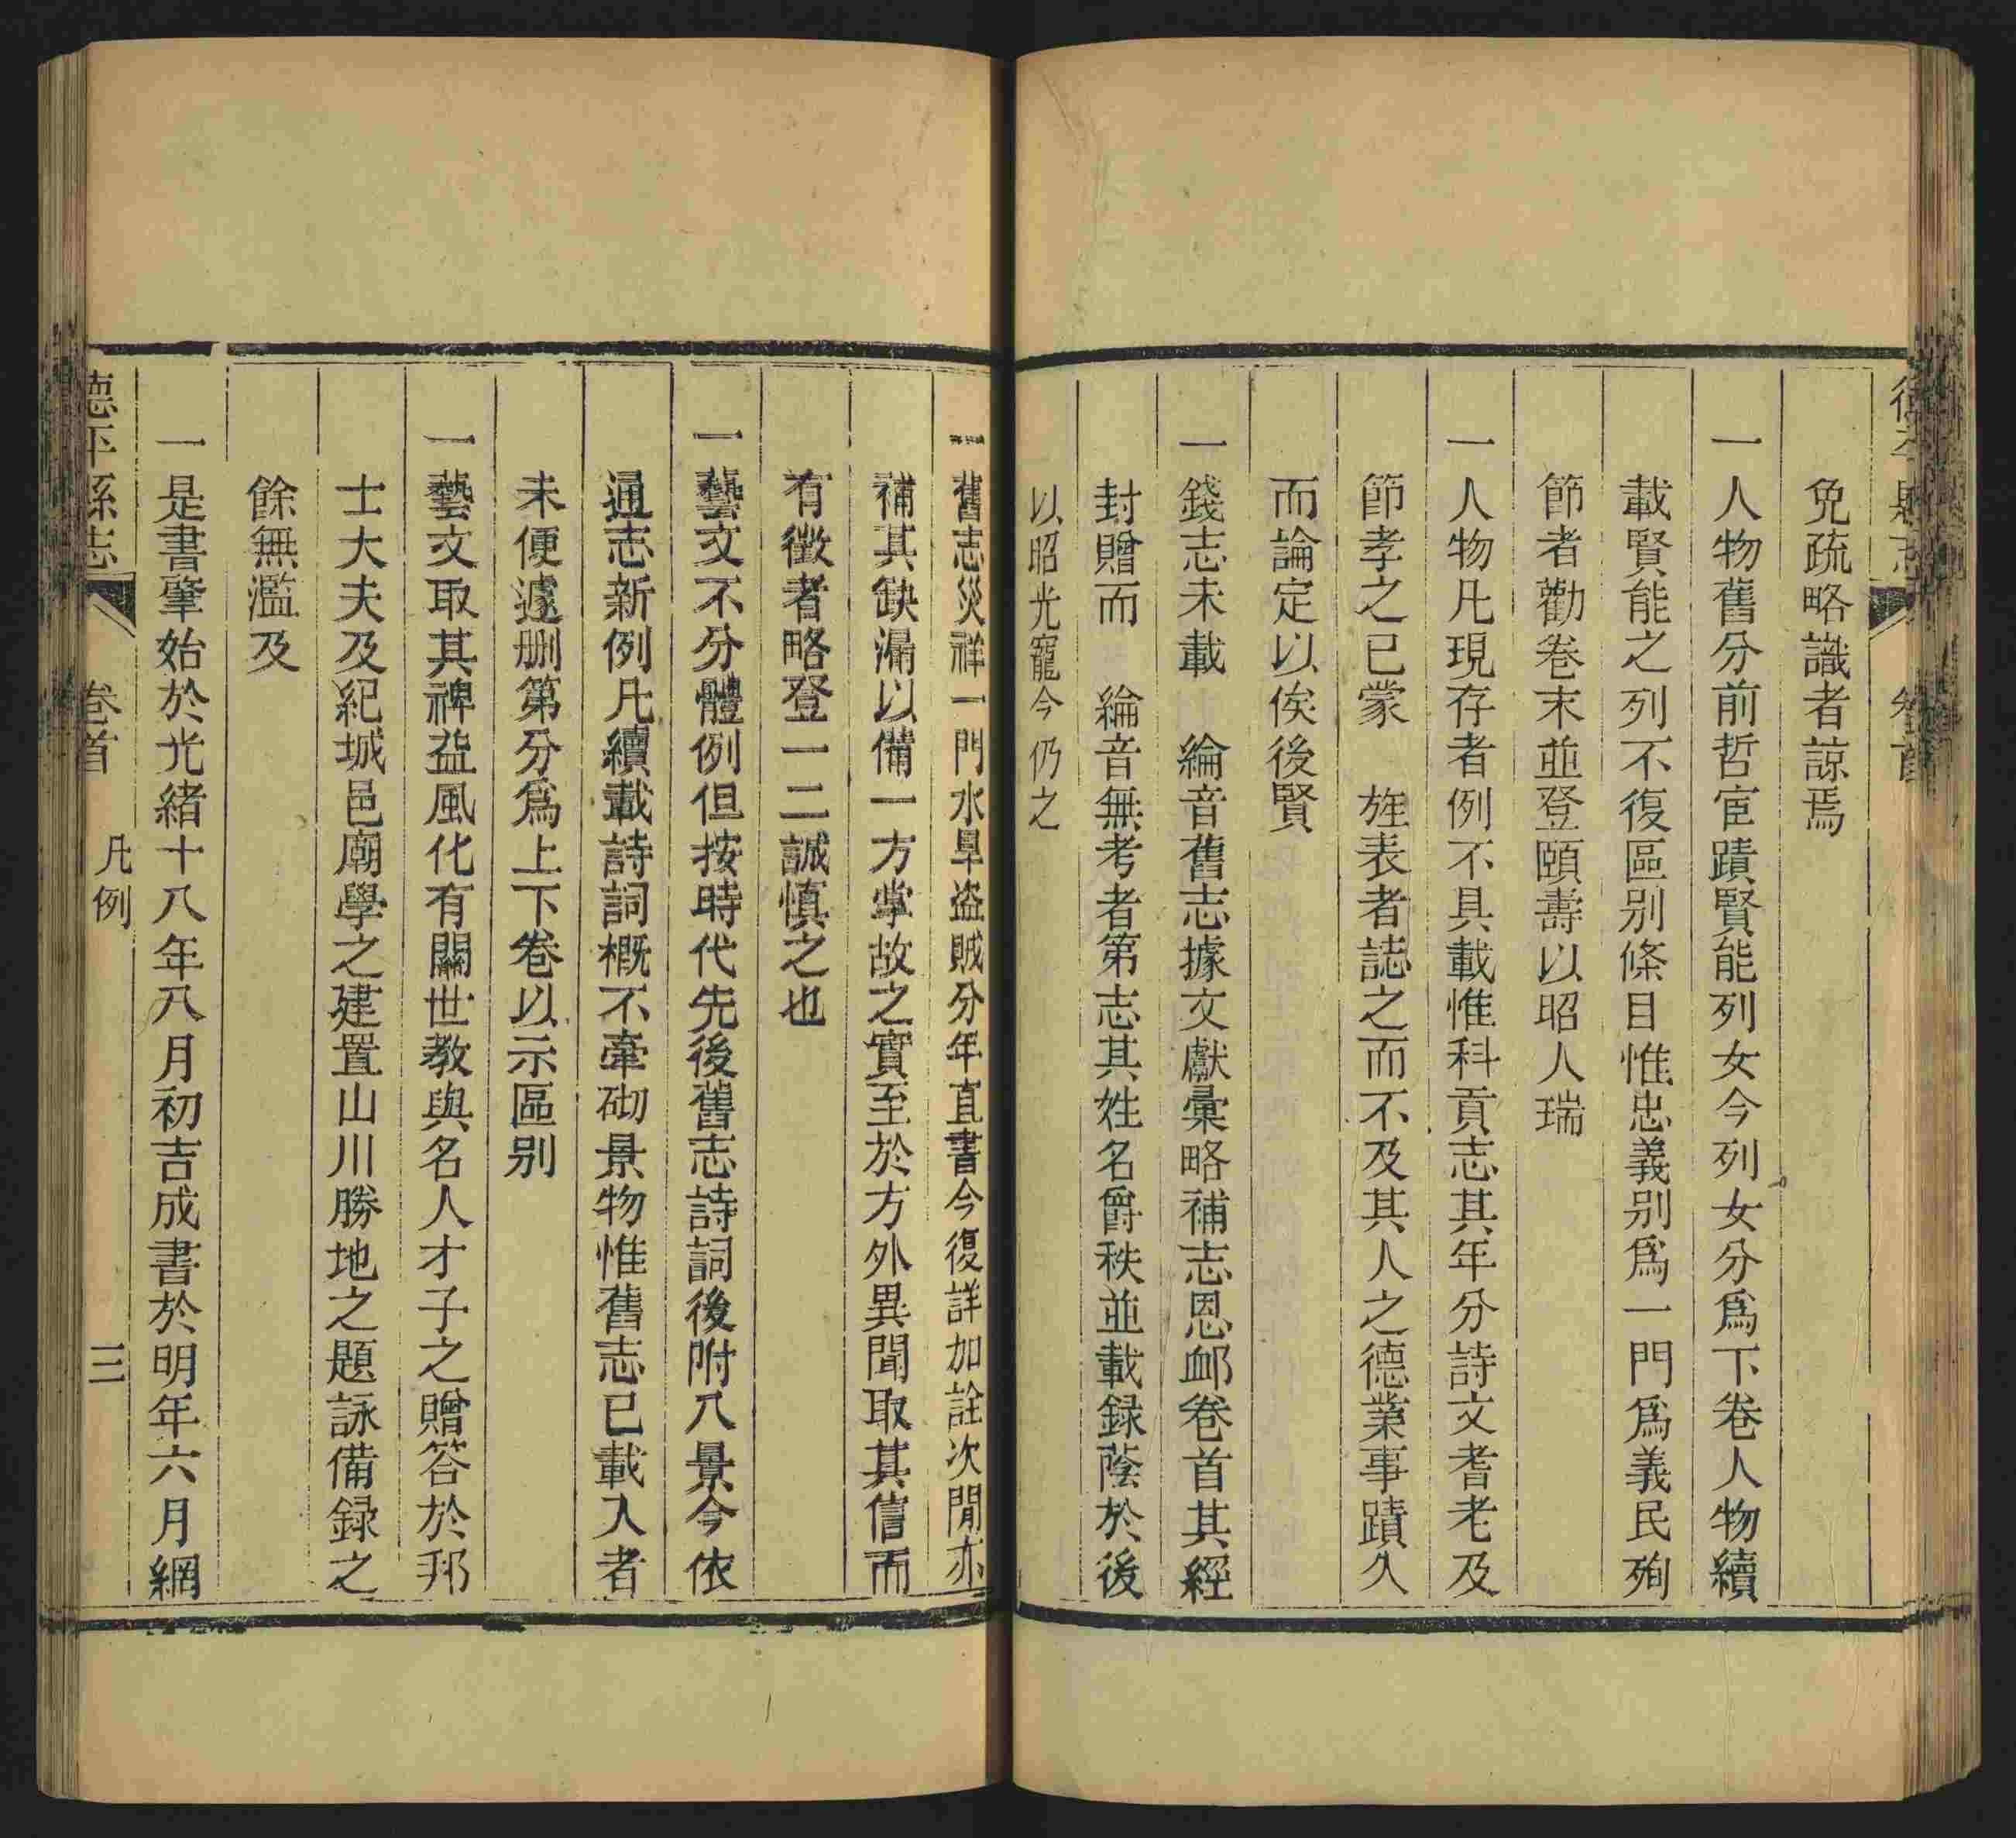 德平縣志
卷首
免疏略識者諒焉
一人物舊分前哲宦蹟賢能列女今列女分爲下卷人物續
載賢能之列不復區别條目惟忠義别爲一門爲義民殉
節者勸卷末並登頤壽以昭人瑞
一人物凡現存者例不具載惟科貢志其年分詩文耆老及
節孝之已蒙　旌表者誌之而不及其人之德業事蹟久
而論定以俟後賢
一錢志未載　綸音舊志據文獻彙略補志恩䘏卷首其經
封贈而　綸音無考者第志其姓名爵秩並載録蔭於後
以昭光寵今仍之
一舊志災祥一門水旱盗賊分年直書今復詳加詮次閒亦
補其缺漏以備一方掌故之實至於方外異聞取其信而
有徵者略登一二誠慎之也
一藝文不分體例但按時代先後舊志詩詞後附八景今依
通志新例凡續載詩詞概不牽砌景物惟舊志已載入者
未便遽删第分爲上下卷以示區别
一藝文取其裨益風化有關世教與名人才子之贈答於邦
士大夫及紀城邑廟學之建置山川勝地之題詠備録之
餘無濫及
一是書肇始於光緒十八年八月初吉成書於明年六月綱
德平縣志
卷首
凡例
三